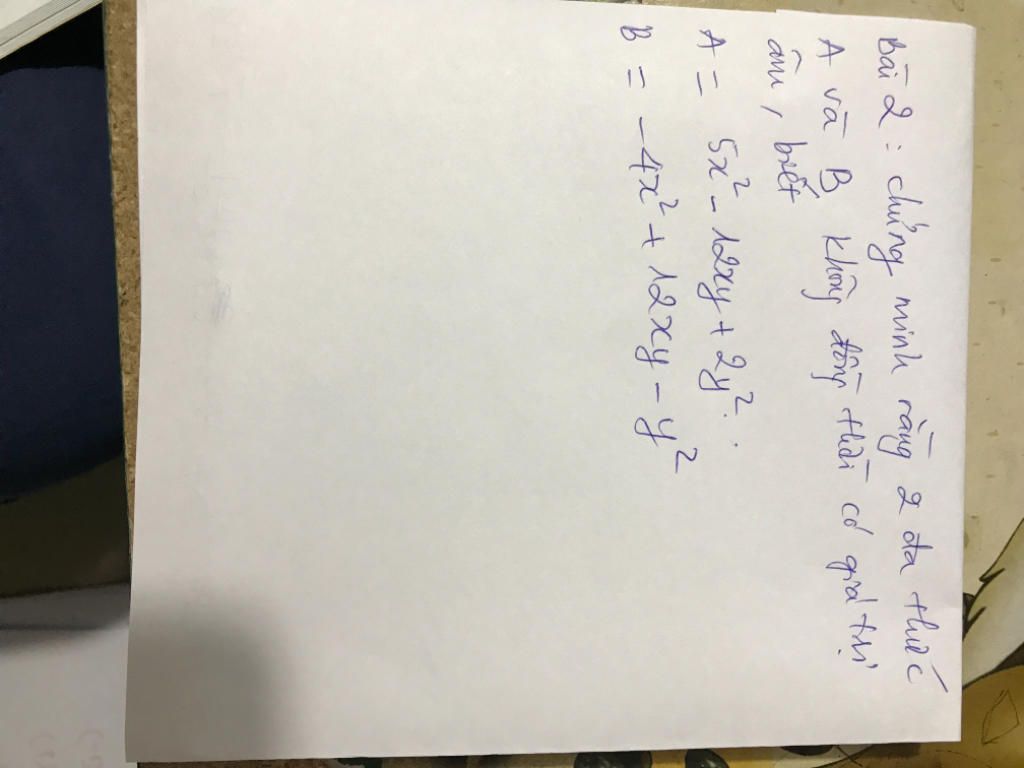 Bài 2: chứng minh rằng 2 đa thức
A và B không đồng thời có giá trị
âm, biết
A = 5x² - 12xy + 2y².
B = -4x² + 12xy - y²